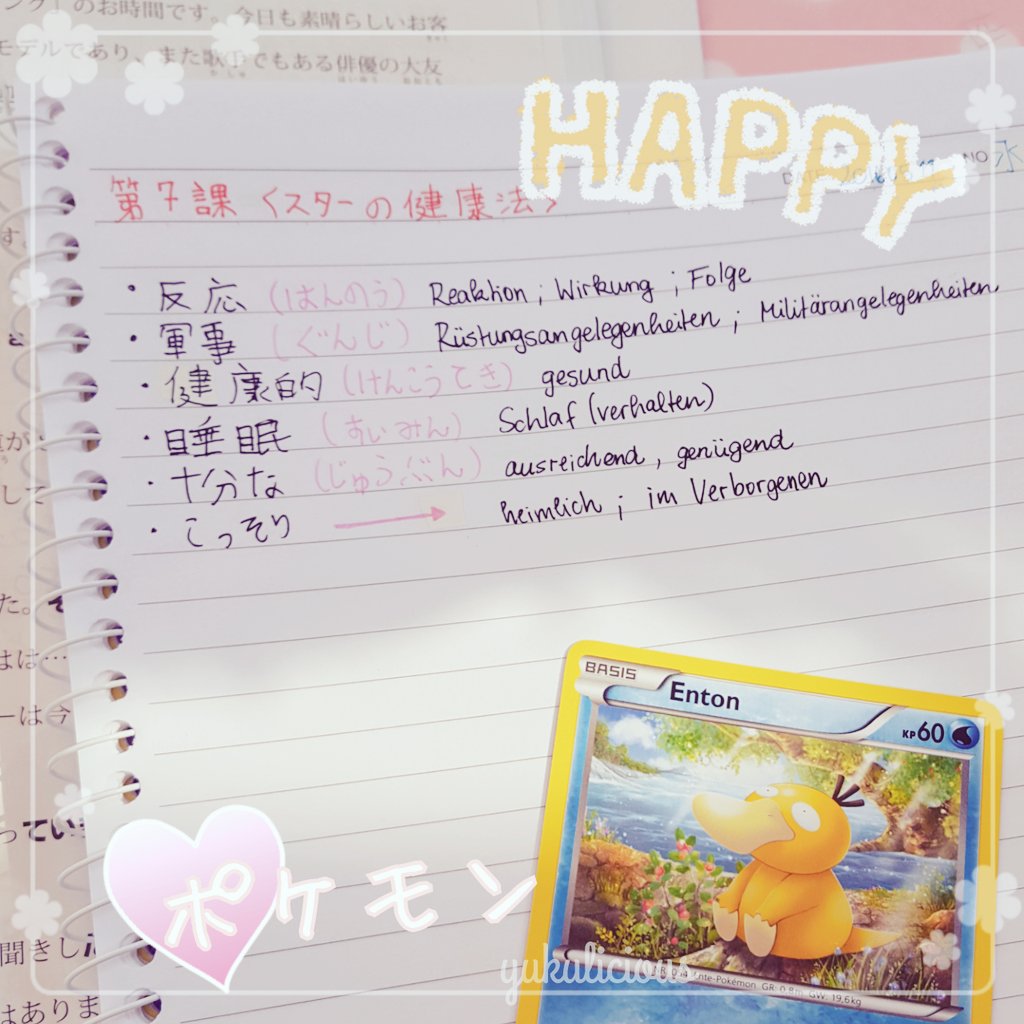 のお時間です。今日も素晴らしいお客
モデルであり、また歌手でもある俳優の大友
HAPPY
NO 水
第7課 <スターの健康法>
・反応 (はんのう) Reaktion ; Wirkung ; Folge
・軍事 (ぐんじ) Rüstungsangelegenheiten ; Militärangelegenheiten
・健康的 (けんこうてき) gesund
・睡眠 (すいみん) Schlaf (verhalten)
・十分な (じゅうぶん) ausreichend , genügend
・こっそり → heimlich ; im Verborgenen
BASIS
Enton
KP60
ポケモン
yukalicious
GR: 0,8m GW: 19,6kg